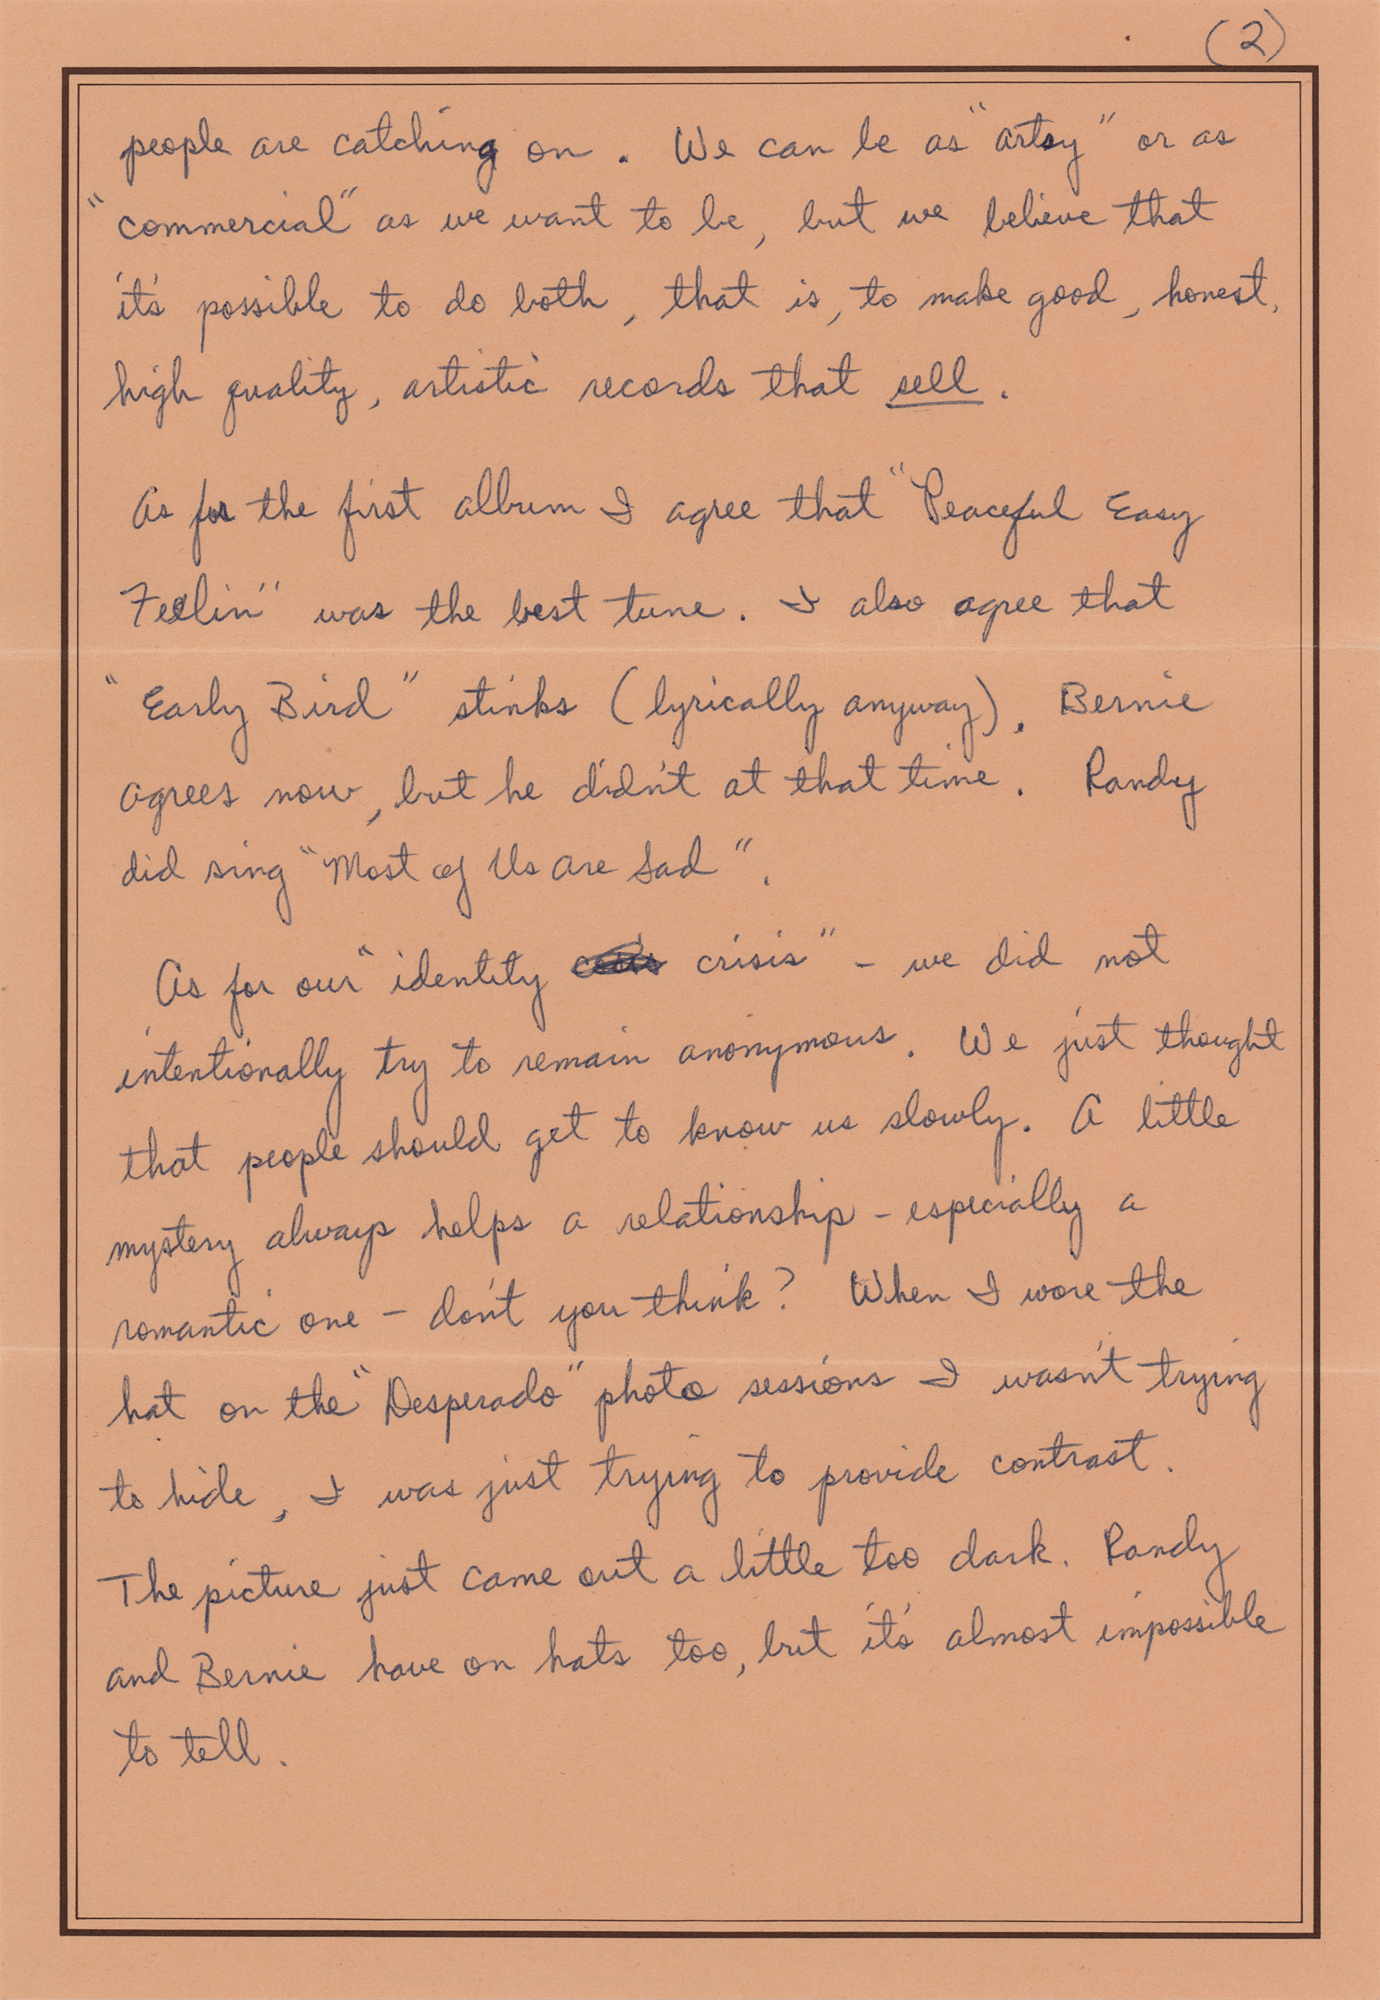 (2)
people are catching on. We can be as "artsy" or as
"commercial" as we want to be, but we believe that
it's possible to do both, that is, to make good, honest,
high quality, artistic records that sell.
As for the first album I agree that "Peaceful Easy
Feelin" was the best tune. I also agree that
"Early Bird" stinks (lyrically anyway). Bernie
agrees now, but he didn't at that time. Randy
did sing "Most of Us Are Sad".
As for our "identity crisis" - we did not
intentionally try to remain anonymous. We just thought
that people should get to know us slowly. A little
mystery always helps a relationship - especially a
romantic one - don't you think? When I wore the
hat on the "Desperado" photo sessions I wasn't trying
to hide, I was just trying to provide contrast.
The picture just came out a little too dark. Randy
and Bernie have on hats too, but it's almost impossible
to tell.